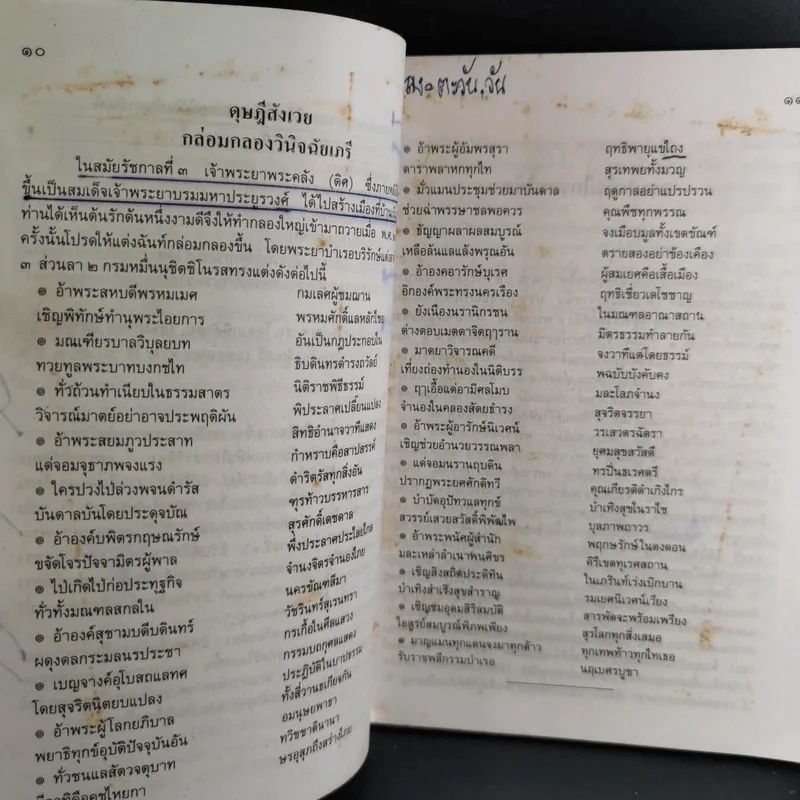 ๑๐
ดุษฎีสังเวย
กล่อมกลองวินิจฉัยเภรี
ในสมัยรัชกาลที่ ๓ เจ้าพระยาพระคลัง (ดิศ) ซึ่งภายหลัง
ขึ้นเป็นสมเด็จเจ้าพระยาบรมมหาประยุรวงศ์ ได้ไปสร้างเมืองที่
ท่านได้เห็นต้นรักต้นหนึ่งงามดีจึงให้ทำกลองใหญ่เข้ามาถวายเมื่อ พ.ศ.
ครั้งนั้นโปรดให้แต่งฉันท์กล่อมกลองขึ้น โดยพระยาบำเรอบริรักษ์แต่ง
๓ ส่วนลา ๒ กรมหมื่นนุชิตชิโนรสทรงแต่งดังต่อไปนี้
๏ อ้าพระสหบดีพรหมเมศ กมเลศผู้ชมฌาน
เชิญพิทักษ์ทำนุพระไอยการ พรหมศักดิ์แลหลักไชย
๏ มณเฑียรบาลวิบุลยบท อันเป็นกฎประกอบใน
ทวยทูลพระบาทบงกชไท ธิบดินทรดำรงถวัลย์
๏ ทั่วถ้วนทำเนียบในธรรมสาตร นิติราชพิธีธรรม์
วิจารณ์มาตย์อย่าอาจประพฤติผัน พิประลาศเปลี่ยนแปลง
๏ อ้าพระสยมภูวประสาท สิทธิอำนาจวาทีแสดง
แด่จอมจุธาภพจงแรง กำหราบคือสาปสรรค์
๏ ใครปวงไป่ล่วงพจนดำรัส ดำริตรัสทุกสิ่งอัน
บันดาลบันโดยประดุจบัณ ฑุรท้าวบรรหารสาร
๏ อ้าองค์บพิตรกฤษณรักษ์ สุรศักดิ์เดชดาล
ขจัดโจรปัจจามิตรผู้พาล พึ่งประลาศประไลยไกล
๏ ไป่เกิดไป่ก่อประทุฐกิจ จำนงจิตรจำนงไภย
ทั่วทั้งมณฑลสกลใน นครขัณฑสีมา
๏ อ้าองค์สุชามบดีบดินทร์ วัชรินทร์สุเรนทรา
ผดุงดลกระมลนรประชา กรเกื้อในศีลแสวง
๏ เบญจางค์อุโบสถแลทศ กรรมบถกุศลแสดง
โดยสุจริตนิตยบแปลง ประฏิบัติในบาปธรรม
๏ อ้าพระผู้โลกยภิบาล ทั้งสี่วานฃเถียจกัน
พยาธิทุกข์อุบัติปัจจุบันอัน อมนุษยพาธา
๏ ทั่วชนแลสัตวจตุบาท ทวิชชาตินานา
หรอุสุภถึงสร่างไภย
๑๑
๏ อ้าพระผู้อัมพรสุรา ฤทธิพายุแขไถง
ดาราพลาหกทุกไท สุรเทพยทั้งมวญ
๏ มั่วแมนประชุมช่วยมาบันดาล ฤดูกาลอย่าแปรปรวน
ช่วยฉ่ำพรรษาชลพอควร คุณพืชทุกพรรณ
๏ ธัญญาผลาผลสมบูรณ์ จงเมือบมูลทั้งเขตขัณฑ์
เหลือล้นแลแล้งพรุณอัน ตรายสองอย่าข้องเคือง
๏ อ้าองคอารักษ์บุเรศ ผู้สมเยศคือเสื้อเมือง
อีกองค์พระทรงนครเรือง ฤทธิเชี่ยวเดโชชาญ
๏ ยังเนืองนรานิกรชน ในมณฑลอาณาสถาน
ต่างตอบเมตตาจิตฤๅราน มิตรธรรมทำลายกัน
๏ มาตยาวิจารณคดี จงวาทีแต่โดยธรรม์
เที่ยงถ่องทำนองในนิติบรร พฉบับบังคับคง
๏ ฤๅเอื้อแต่อามิศลโมบ มละโลภจำนง
จำนองในคลองสัตยธำรง สุจริตจรรยา
๏ อ้าพระผู้อารักษ์นิเวศน์ วรเสวตรฉัตรา
เชิญช่วยอำนวยวรรณพลา ยุศมสุขสวัสดี
๏ แด่จอมนรานฤบดิน ทรปิ่นธเรศตรี
ปรากฏพระยศศักดิทวี คุณเกียรติดำเกิงไกร
๏ บำบัดอุปัทวแลทุกข์ บำเทิงสุขในราไช
สวรรย์เสวยสวัสดิ์พิพัฒไพ บุลภาพถาวร
๏ อ้าพระพนัศผู้สำนัก พฤกษรักษ์ในดงดอน
มละเหล่าลำเนาพนศิขร คิรีเขตทุเรศสถาน
๏ เชิญสิงสถิตประดิทิน ในเภรินทร์เร่งเบิกบาน
บำเทิงสำเริงสุขสำราญ รมเยศนิเวศน์เวียง
๏ เชิญชมอุดมสิริสมบัติ สารพัดจะพร้อมเพรียง
ไอสูรย์สมบูรณ์พิภพเพียง สุรโลกทุกสิ่งเสมอ
๏ มาญแมนทุกแดนจงมาทุกด้าว ทุกเทพท้าวทุกไทเธอ
รับราชพลีกรรมบำเรอ นฤเบศรบูชา